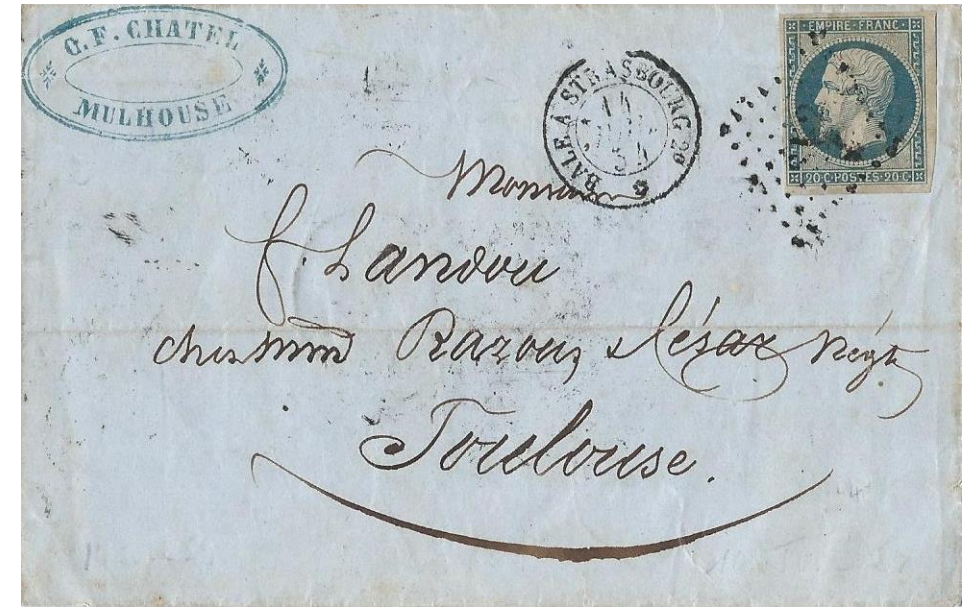 G. F. CHATEL
MULHOUSE
BALE A STRASBOURG 2°
14
54
EMPIRE FRANC
20·C·POSTES·20·C
Monsieur
Landou
chez Razouy & César Négts
Toulouse.